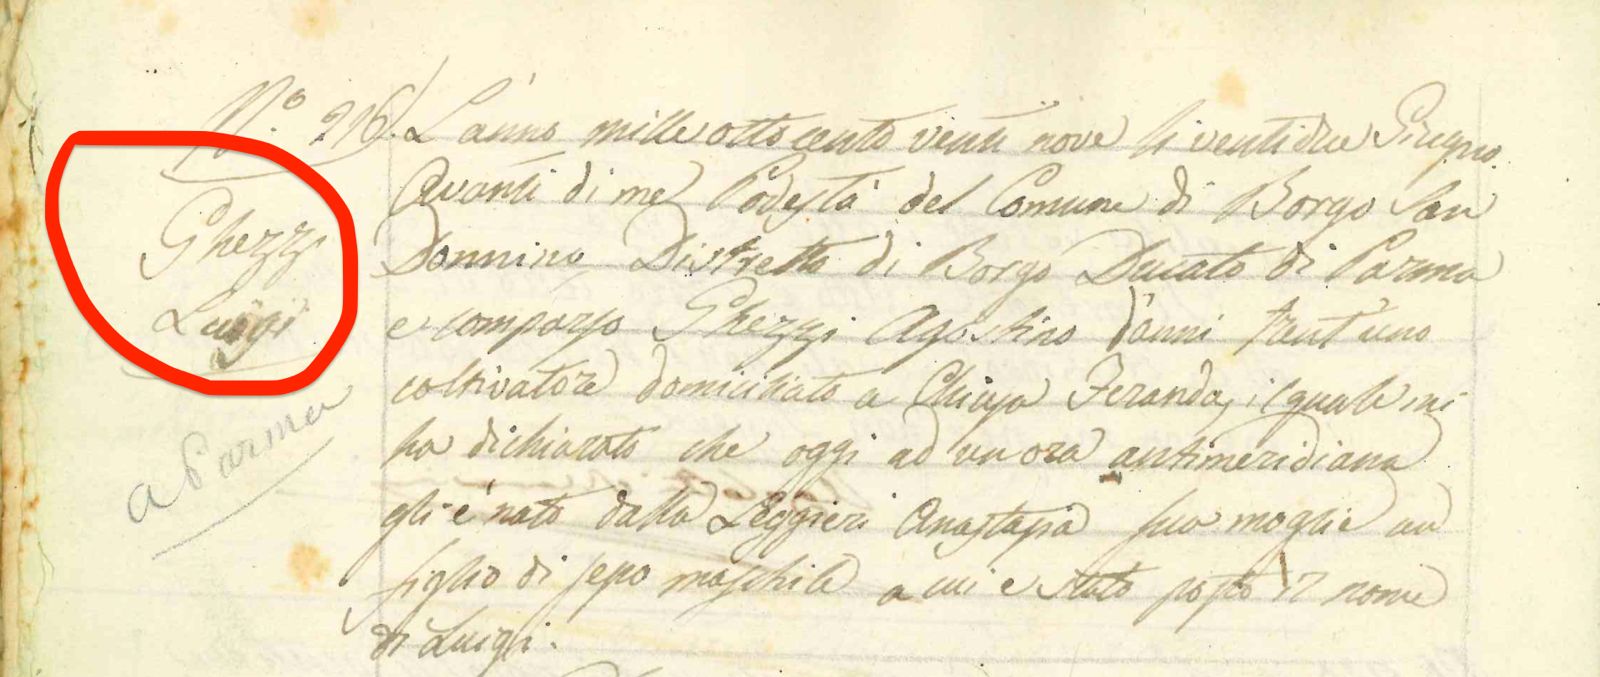 N.° 216.
Ghezzi
Luigi
a Parma
L'anno mille otto cento venti nove li ventidue Giugno
Avanti di me Podestà del Comune di Borgo San
Donnino, Distretto di Borgo Ducato di Parma
e comparso Ghezzi Agostino d'anni trent'uno
coltivatore domiciliato a Chiusa Feranda, il quale mi
ha dichiarato che oggi ad un ora antimeridiana
gli è nato dalla Leggieri Anastasia sua moglie un
figlio di sesso maschile a cui e stato posto il nome
di Luigi.